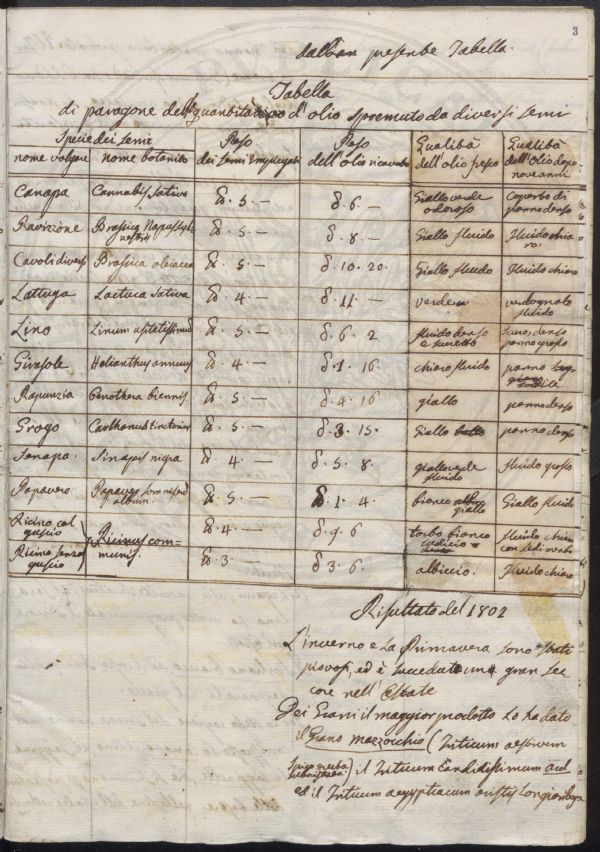 3
dalla presente Tabella.
Tabella
di paragone della quantità d'olio spremuto da diversi semi
Specie dei semi
nome volgare nome botanico
Peso dei semi impiegati
Peso dell'olio ricavato
Qualità dell'olio fresco
Qualità dell'olio dopo nove anni
Canapa Cannabis sativa 5. — 6. — Gialloverde odoroso Coperto di panno denso
Ravizione Brassica Napus sylvestris 5. — 8. — Giallo fluido Fluido chiaro
Cavoli diversi Brassica oleracea 5. — 10. 20. Giallo fluido Fluido chiaro
Lattuga Lactuca sativa 4. — 11. — verde verdognolo fluido
Lino Linum usitatissimum 5. — 6. 2 fluido denso panno grosso
Girasole Helianthus annuus 4. — 1. 16. chiaro fluido panno
Rapunzia Oenothera biennis 5. — 4. 16 giallo panno denso
Grogo Carthamus tinctorius 5. — 3. 15. Giallo panno denso
Senapa Sinapis nigra 4. — 5. 8. gialloverde fluido fluido grosso
Papavero Papaver somniferum album 5. — 1. 4. bianco giallo Giallo fluido
Ricino col guscio Ricinus communis. 4. — 9. 6 torbo bianco fluido chiaro con sedimento
Ricino senza guscio 3 3 6. albiccio. Fluido chiaro
Risultato del 1802
L'inverno e la Primavera sono stati
piovosi, ed è succeduto un gran sec
core nell'Estate
Dei Grani il maggior prodotto lo ha dato
il Grano mazzocchio (Triticum aestivum
spica) il Triticum Candidissimum
ed il Triticum aegyptiacum aristis longioribus